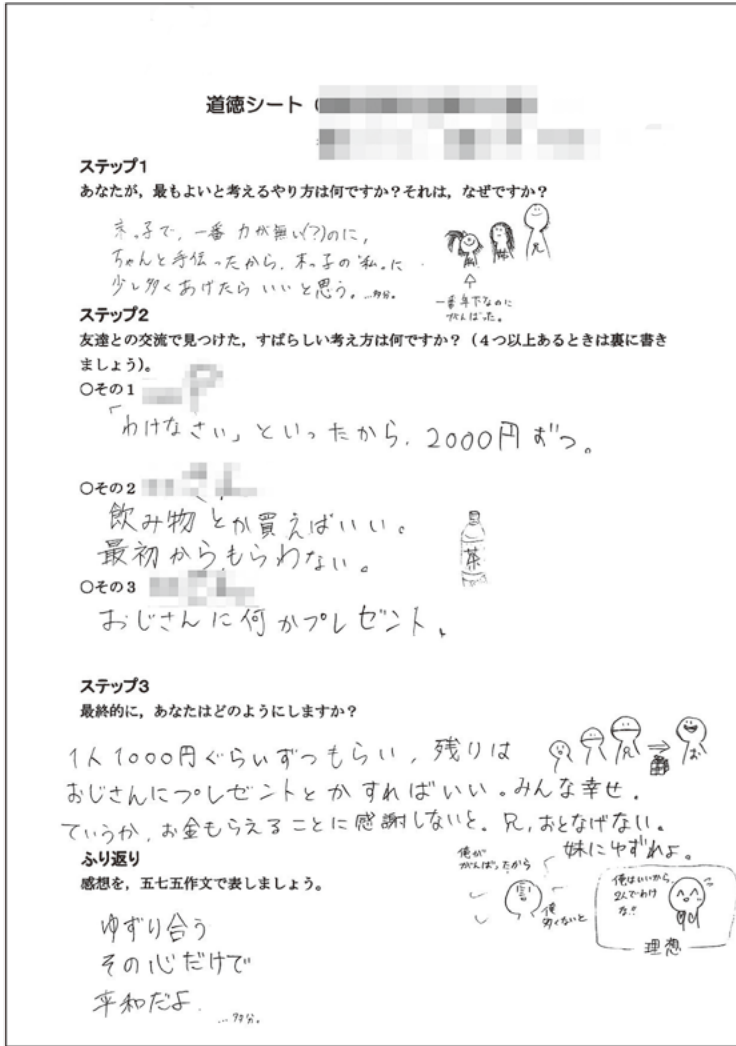 道徳シート（
ステップ1
あなたが，最もよいと考えるやり方は何ですか？それは，なぜですか？
末っ子で，一番 力が無い(?)のに，
ちゃんと手伝ったから，末っ子の「私」に
少し多くあげたら いいと思う。…多分。
兄
一番年下なのに
がんばった。
ステップ2
友達との交流で見つけた，すばらしい考え方は何ですか？（４つ以上あるときは裏に書き
ましょう）。
○その１
「わけなさい」といったから，2000円ずつ。
○その２
飲み物とか買えばいい。
最初からもらわない。
茶
○その３
おじさんに何かプレゼント、
ステップ3
最終的に，あなたはどのようにしますか？
1人1000円ぐらいずつもらい，残りは
兄
お
おじさんにプレゼントとかすればいい。みんな幸せ．
ていうか，お金もらえることに感謝しないと。兄，おとなげない。
妹にゆずれよ。
ふり返り
感想を，五七五作文で表しましょう。
俺が
がんばったから
俺
多くないと
俺はいいから
2人でわけ
な!!
理想
ゆずり合う
その心だけで
平和だよ．
…多分。